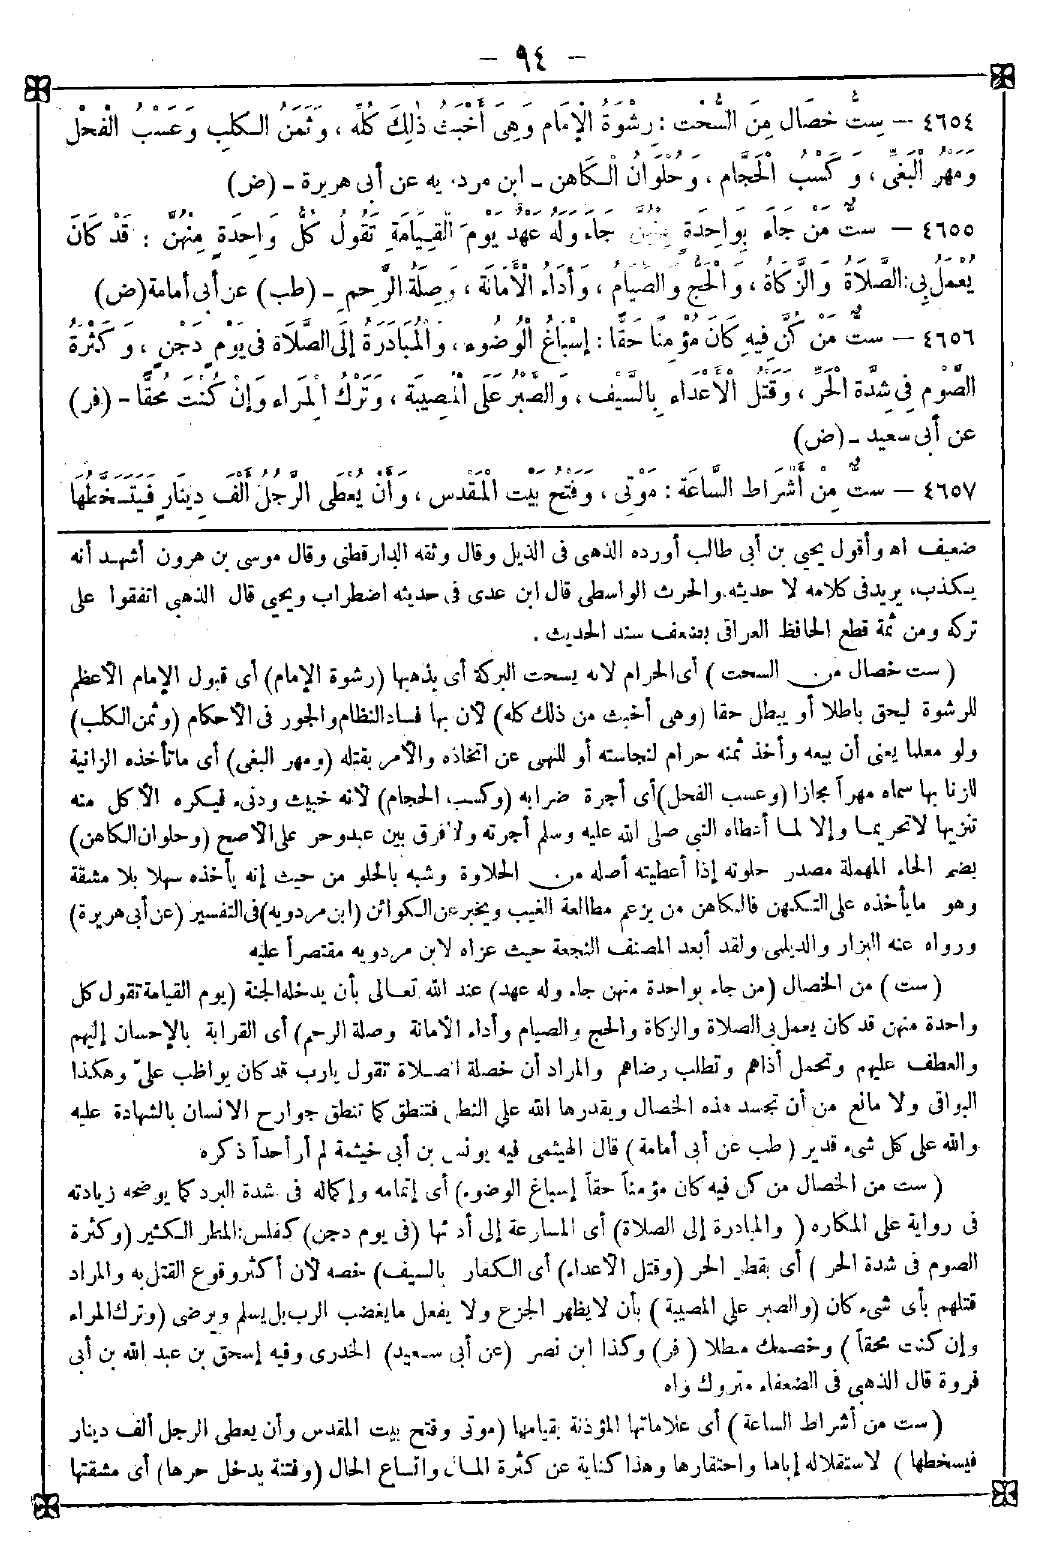 - ٩٤ -
٤٦٥٤ - سِتُّ خِصَالٍ مِنَ السُّحْتِ: رِشْوَةُ الْإِمَامِ وَهِىَ أَخْبَثُ ذٰلِكَ كُلِّهِ، وَثَمَنُ الْكَلْبِ وَعَسْبُ الْفَحْلِ
وَمَهْرُ الْبَغِىِّ، وَكَسْبُ الْحَجَّامِ، وَحُلْوَانُ الْكَاهِنِ - ابن مردويه عن أبى هريرة - (ض)
٤٦٥٥ - سِتٌّ مَنْ جَاءَ بِوَاحِدَةٍ مِنْهُنَّ جَاءَ وَلَهُ عَهْدٌ يَوْمَ الْقِيَامَةِ تَقُولُ كُلُّ وَاحِدَةٍ مِنْهُنَّ: قَدْ كَانَ
يُعْمَلُ بِى: الصَّلَاةُ وَالزَّكَاةُ، وَالْحَجُّ وَالصِّيَامُ، وَأَدَاءُ الْأَمَانَةِ، وَصِلَةُ الرَّحِمِ - (طب) عن أبى أمامة (ض)
٤٦٥٦ - سِتٌّ مَنْ كُنَّ فِيهِ كَانَ مُؤْمِنًا حَقًّا: إِسْبَاغُ الْوُضُوءِ، وَالْمُبَادَرَةُ إِلَى الصَّلَاةِ فِى يَوْمٍ دَجْنٍ، وَكَثْرَةُ
الصَّوْمِ فِى شِدَّةِ الْحَرِّ، وَقَتْلُ الْأَعْدَاءِ بِالسَّيْفِ، وَالصَّبْرُ عَلَى الْمُصِيبَةِ، وَتَرْكُ الْمِرَاءِ وَإِنْ كُنْتَ مُحِقًّا - (فر)
عن أبى سعيد - (ض)
٤٦٥٧ - سِتٌّ مِنْ أَشْرَاطِ السَّاعَةِ: مَوْتِى، وَفَتْحُ بَيْتِ الْمَقْدِسِ، وَأَنْ يُعْطَى الرَّجُلُ أَلْفَ دِينَارٍ فَيَتَسَخَّطُهَا
ضعيف اه وأقول يحيى بن أبى طالب أورده الذهى فى الذيل وقال وثقه الدارقطنى وقال موسى بن هرون أشهد أنه
يكذب، يريد فى كلامه لا حديثه والحرث الواسطى قال ابن عدى فى حديثه اضطراب ويحيى قال الذهبى اتفقوا على
تركه ومن ثمة قطع الحافظ العراقى بضعف سند الحديث.
(ست خصال من السحت) أى الحرام لانه يسحت البركة أى يذهبها (رشوة الإمام) أى قبول الإمام الأعظم
للرشوة ليحق باطلا أو يبطل حقا (وهى أخبث من ذلك كله) لأن بها فساد النظام والجور فى الأحكام (وثمن الكلب)
ولو معلما يعنى أن بيعه وأخذ ثمنه حرام لنجاسته أو للنهى عن اتخاذه والأمر بقتله (ومهر البغى) أى ما تأخذه الزانية
للزنا بها سماه مهراً مجازا (وعسب الفحل) أى أجرة ضرابه (وكسب الحجام) لأنه خبيث ودنىء فيكره الأكل منه
تنزيها لا تحريما وإلا لما أعطاه النبى صلى الله عليه وسلم أجرته ولا فرق بين عبد وحر على الأصح (وحلوان الكاهن)
بضم الحاء المهملة مصدر حلوته إذا أعطيته أصله من الحلاوة وشبه بالحلو من حيث إنه يأخذه سهلا بلا مشقة
وهو ما يأخذه على التكهن فالكاهن من يزعم مطالعة الغيب ويخبر عن الكوائن (ابن مردويه) فى التفسير (عن أبى هريرة)
ورواه عنه البزار والديلمى ولقد أبعد المصنف النجعة حيث عزاه لابن مردويه مقتصراً عليه
(ست) من الخصال (من جاء بواحدة منهن جاء وله عهد) عند الله تعالى بأن يدخله الجنة (يوم القيامة تقول كل
واحدة منهن قد كان يعمل بى الصلاة والزكاة والحج والصيام وأداء الأمانة وصلة الرحم) أى القرابة بالإحسان إليهم
والعطف عليهم وتحمل أذاهم وتطلب رضاهم والمراد أن خصلة الصلاة تقول يارب قد كان يواظب علىّ وهكذا
البواقى ولا مانع من أن تجسد هذه الخصال ويقدرها الله على النطق فتنطق كما تنطق جوارح الانسان بالشهادة عليه
والله على كل شىء قدير (طب عن أبى أمامة) قال الهيثمى فيه يونس بن أبى خيثمة لم أر أحداً ذكره
(ست من الخصال من كن فيه كان مؤمناً حقاً إسباغ الوضوء) أى إتمامه وإكماله فى شدة البرد كما يوضحه زيادته
فى رواية على المكاره (والمبادرة إلى الصلاة) أى المسارعة إلى أدائها (فى يوم دجن) كفلس: المطر الكثير (وكثرة
الصوم فى شدة الحر) أى بقطر الحر (وقتل الأعداء) أى الكفار بالسيف) خصه لأن أكثر وقوع القتل به والمراد
قتلهم بأى شىء كان (والصبر على المصيبة) بأن لا يظهر الجزع ولا يفعل ما يغضب الرب بل يسلم ويرضى (وترك المراء
وإن كنت محقاً) وخصمك مبطلا (فر) وكذا ابن نصر (عن أبى سعيد) الخدرى وفيه إسحق بن عبد الله بن أبى
فروة قال الذهبى فى الضعفاء متروك واه
(ست من أشراط الساعة) أى علاماتها المؤذنة بقيامها (موتى وفتح بيت المقدس وأن يعطى الرجل ألف دينار
فيسخطها) لاستقلاله إياها واحتقارها وهذا كناية عن كثرة المال واتساع الحال (وفتنة يدخل حرها) أى مشقتها